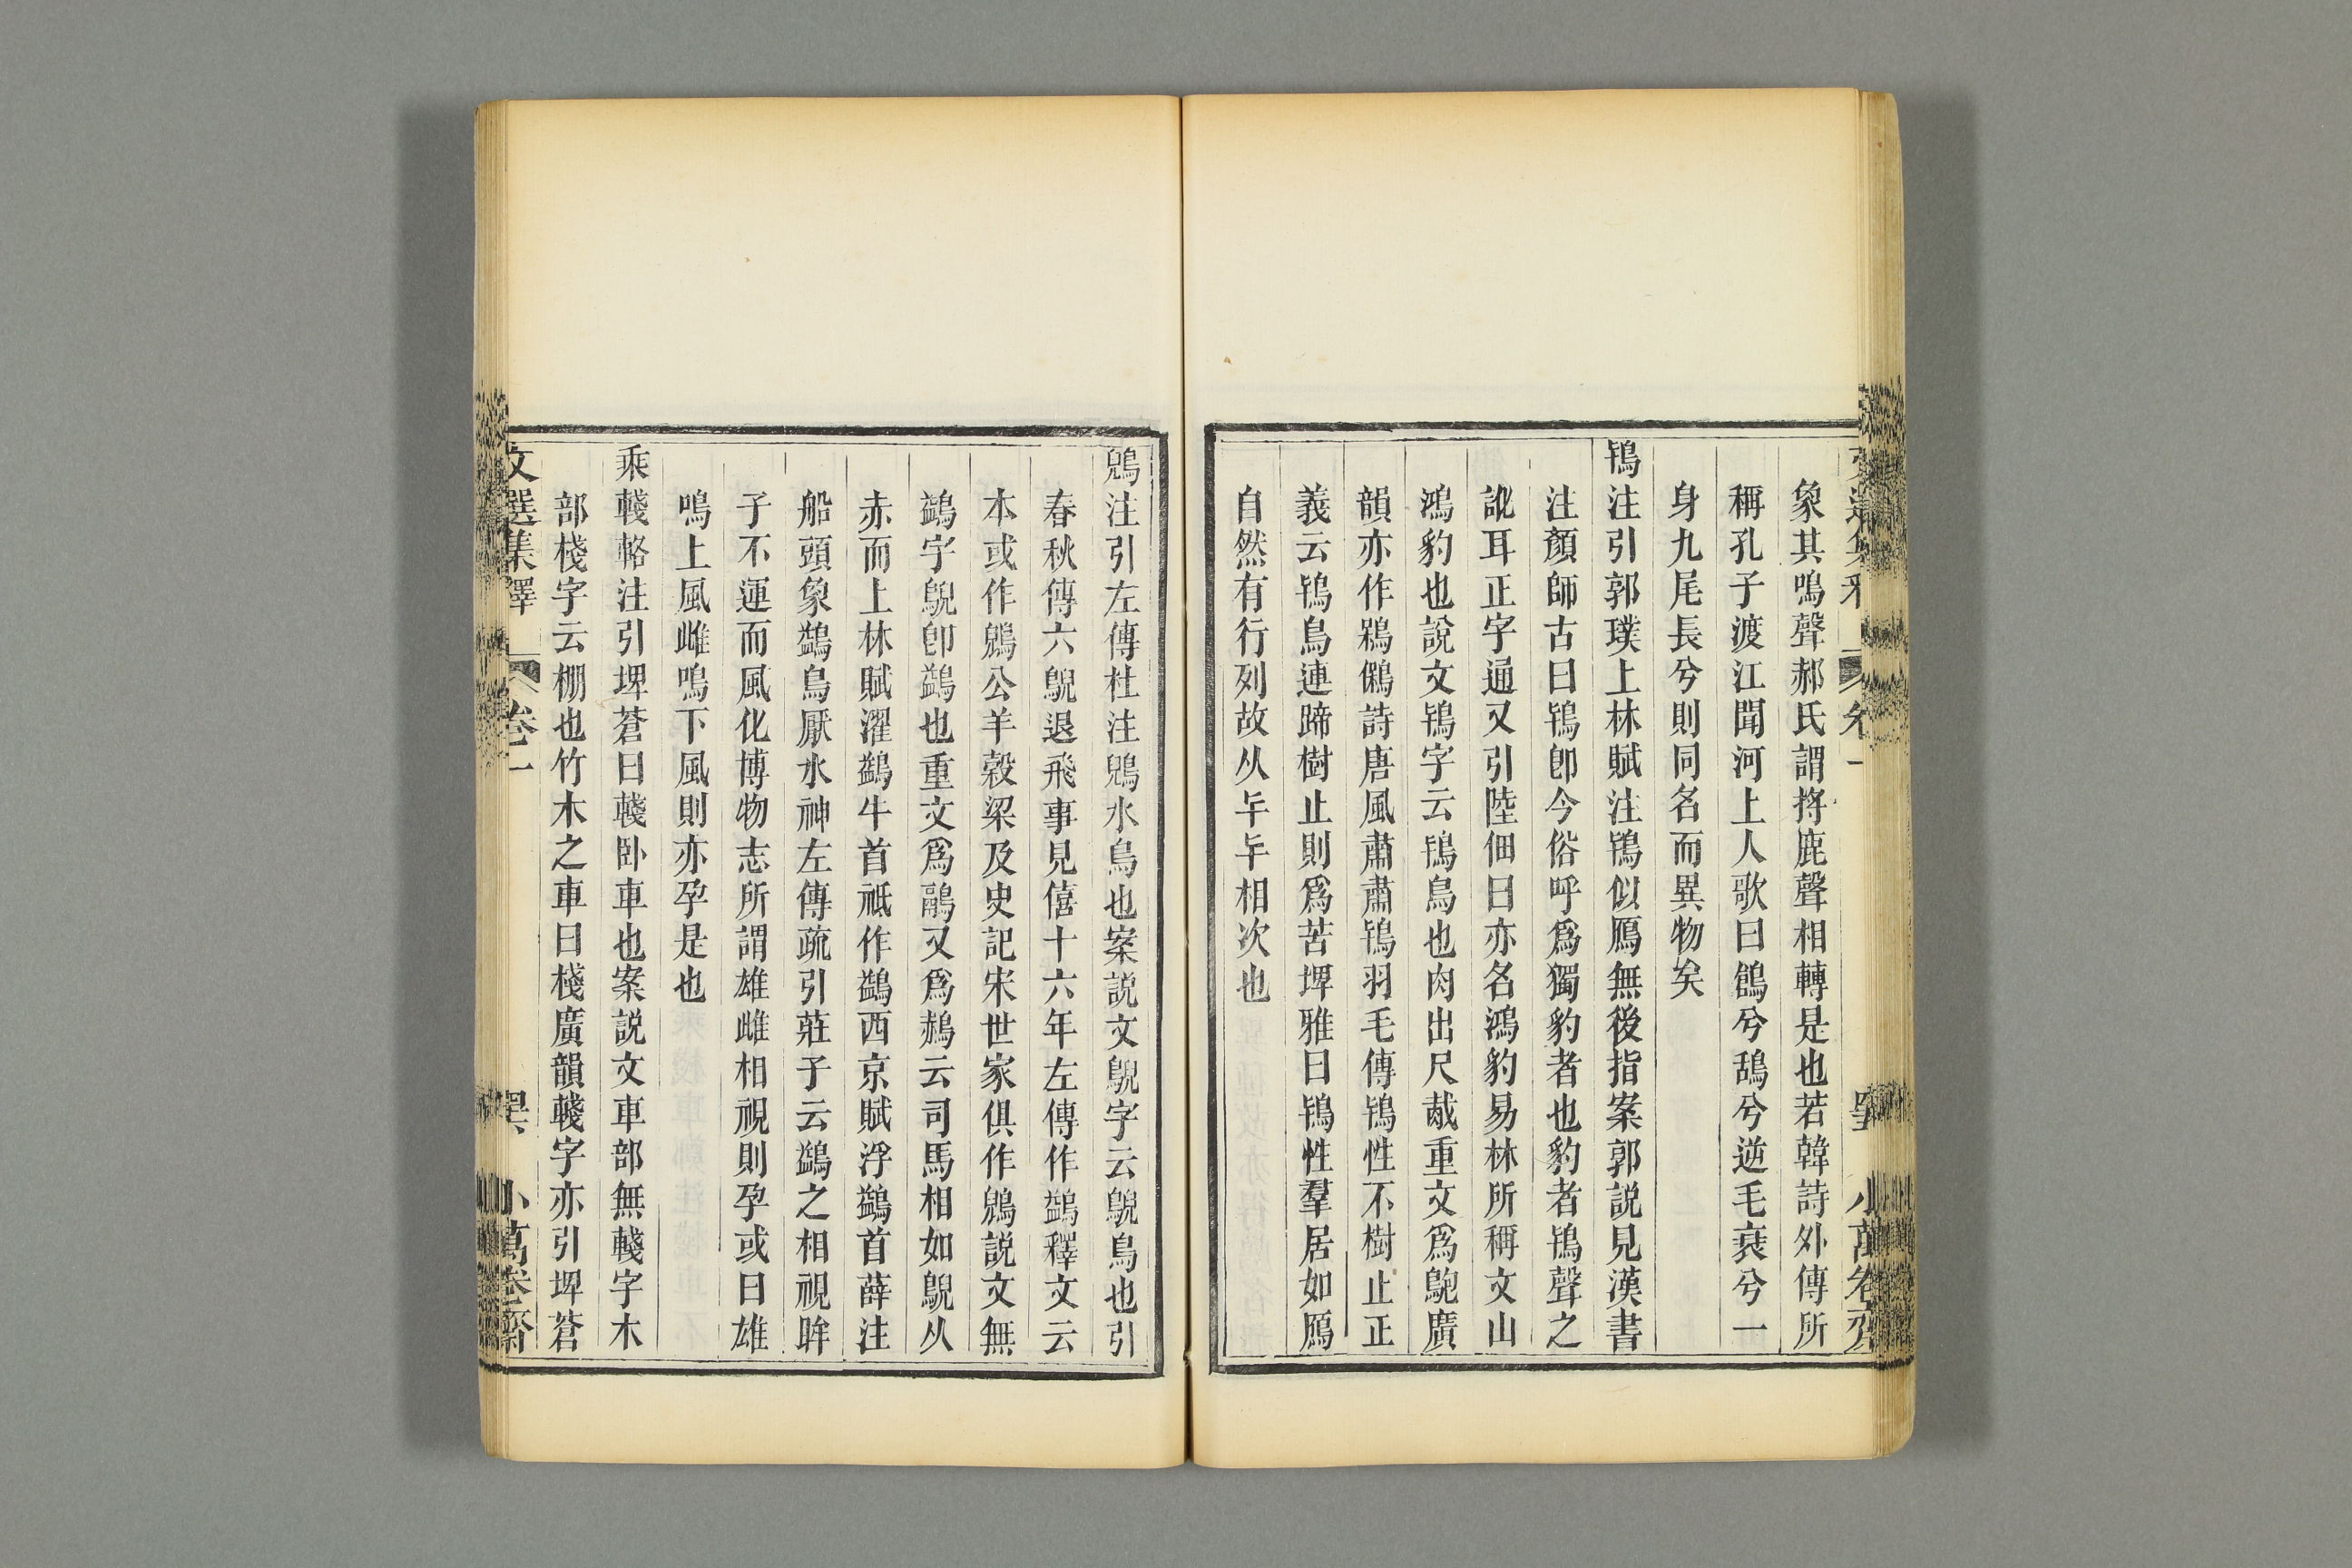 象其鳴聲郝氏謂捋鹿聲相轉是也若韓詩外傳所
稱孔子渡江聞河上人歌曰鶬兮鴰兮逆毛衰兮一
身九尾長兮則同名而異物矣
鴇注引郭璞上林賦注鴇似鴈無後指案郭說見漢書
注顏師古曰鴇卽今俗呼爲獨豹者也豹者鴇聲之
訛耳正字通又引陸佃曰亦名鴻豹易林所稱文山
鴻豹也說文鴇字云鴇鳥也肉出尺胾重文爲鴘廣
韻亦作鵶䳈詩唐風肅肅鴇羽毛傳鴇性不樹止正
義云鴇鳥連蹄樹止則爲苦埤雅曰鴇性羣居如鴈
自然有行列故从𠤏𠤏相次也
鶂注引左傳杜注鶂水鳥也案説文鶃字云鶃鳥也引
春秋傳六鶃退飛事見僖十六年左傳作鷁釋文云
本或作鶂公羊穀梁及史記宋世家俱作鶂說文無
鷁字鶃卽鷁也重文爲䴐又爲鷊云司馬相如鶃从
赤而上林賦濯鷁牛首祗作鷁西京賦浮鷁首薛注
船頭象鷁鳥厭水神左傳疏引莊子云鷁之相視眸
子不運而風化博物志所謂雄雌相視則孕或曰雄
鳴上風雌鳴下風則亦孕是也
乘輚輅注引埤蒼曰輚臥車也案説文車部無輚字木
部棧字云棚也竹木之車曰棧廣韻輚字亦引埤蒼
文選集釋 卷一 小萬卷齋